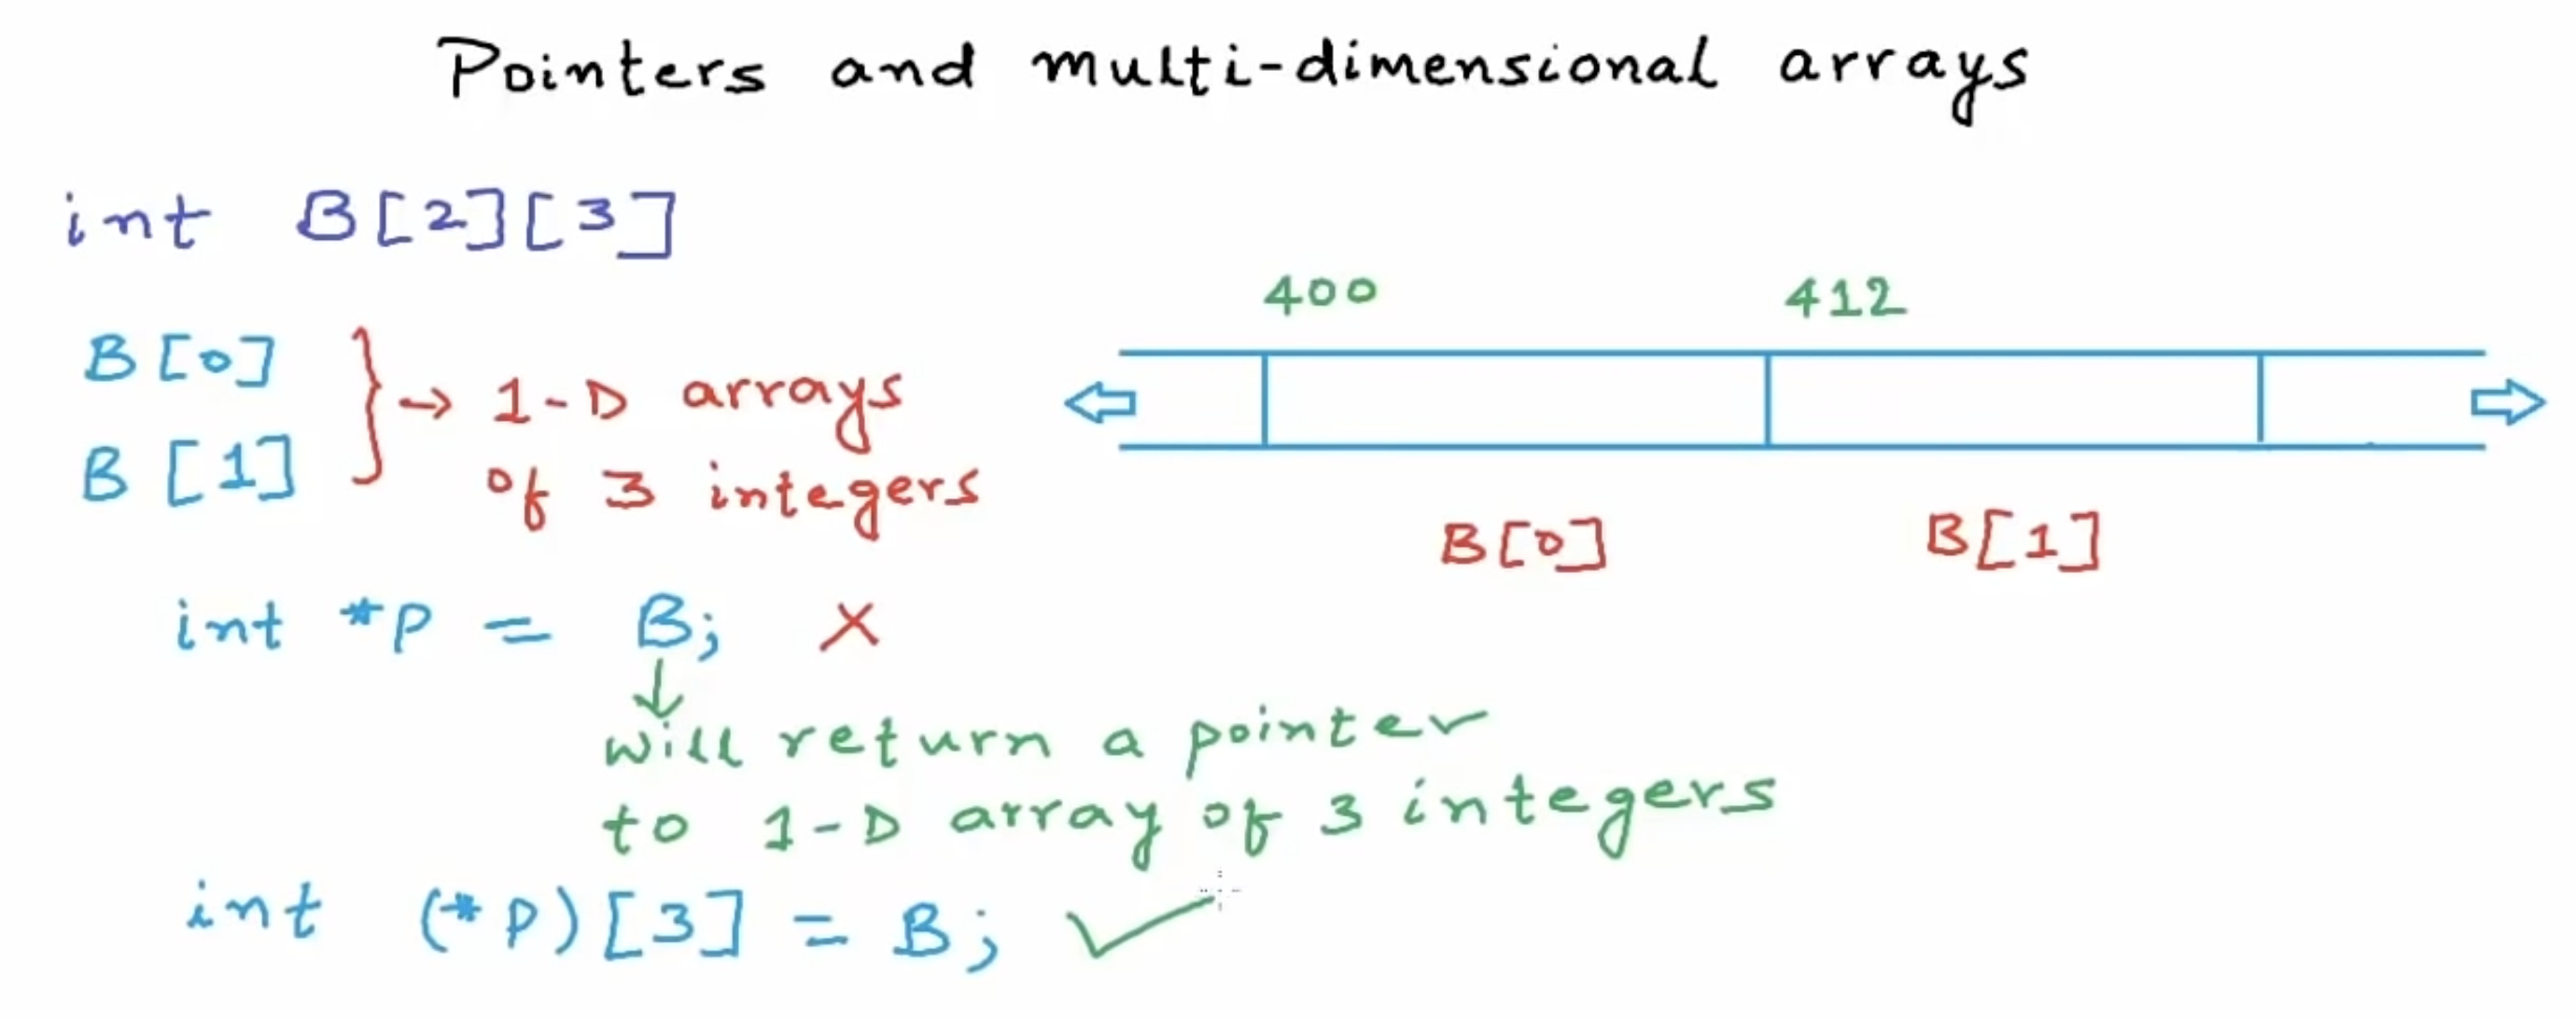 Pointers and multi-dimensional arrays
int B[2][3]
400 412
B[0] } → 1-D arrays
B[1] of 3 integers
B[0] B[1]
int *p = B; ✗
↓
will return a pointer
to 1-D array of 3 integers
int (*p)[3] = B; ✓